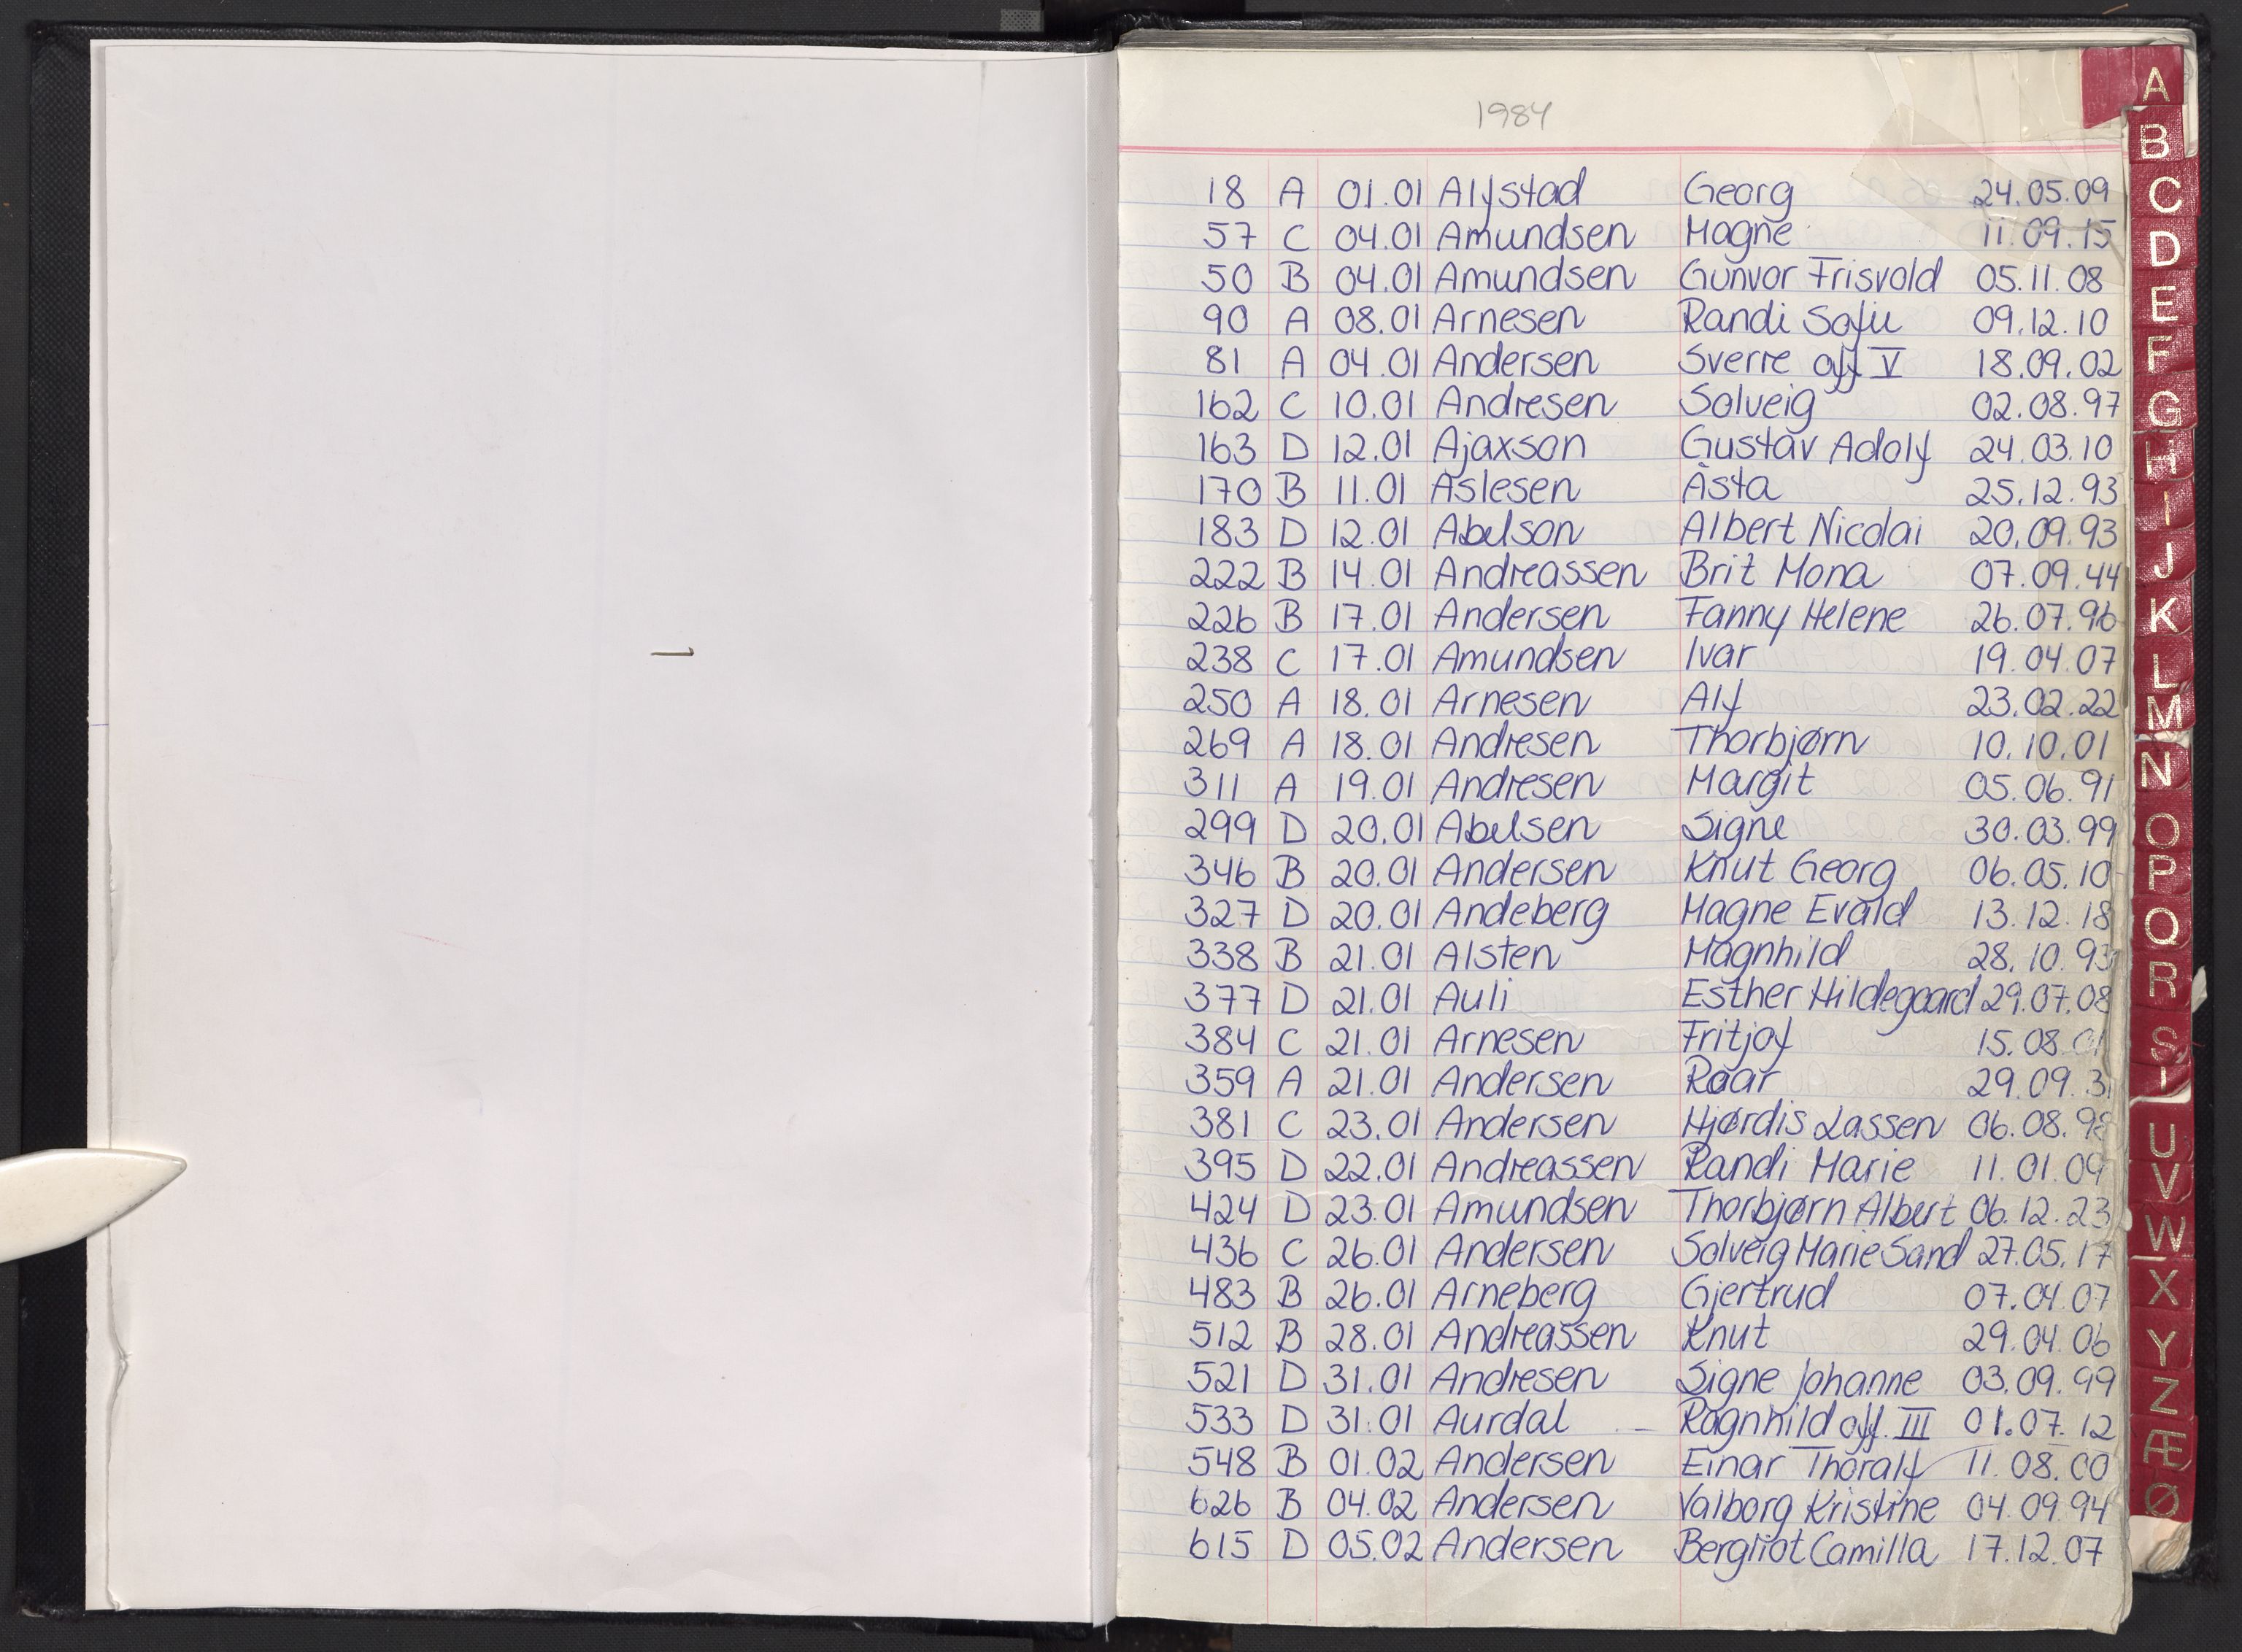 1984
18 A 01.01 Alfstad Georg 24.05.09
57 C 04.01 Amundsen Magne 11.09.15
50 B 04.01 Amundsen Gunvor Frisvold 05.11.08
90 A 08.01 Arnesen Randi Sofie 09.12.10
81 A 04.01 Andersen Sverre off V 18.09.02
162 C 10.01 Andresen Solveig 02.08.97
163 D 12.01 Ajaxson Gustav Adolf 24.03.10
170 B 11.01 Åslesen Åsta 25.12.93
183 D 12.01 Abelson Albert Nicolai 20.09.93
222 B 14.01 Andreassen Brit Mona 07.09.44
226 B 17.01 Andersen Fanny Helene 26.07.96
238 C 17.01 Amundsen Ivar 19.04.07
250 A 18.01 Arnesen Alf 23.02.22
269 A 18.01 Andresen Thorbjørn 10.10.01
311 A 19.01 Andresen Margit 05.06.91
299 D 20.01 Abelsen Signe 30.03.99
346 B 20.01 Andersen Knut Georg 06.05.10
327 D 20.01 Andeberg Magne Evald 13.12.18
338 B 21.01 Alsten Magnhild 28.10.93
377 D 21.01 Auli Esther Hildegaard 29.07.08
384 C 21.01 Arnesen Fritjof 15.08.01
359 A 21.01 Andersen Roar 29.09.31
381 C 23.01 Andersen Hjørdis Lassen 06.08.98
395 D 22.01 Andreassen Randi Marie 11.01.09
424 D 23.01 Amundsen Thorbjørn Albert 06.12.23
436 C 26.01 Andersen Solveig Marie Sand 27.05.17
483 B 26.01 Arneberg Gjertrud 07.04.07
512 B 28.01 Andreassen Knut 29.04.06
521 D 31.01 Andresen Signe Johanne 03.09.99
533 D 31.01 Aurdal – Ragnhild off. III 01.07.12
548 B 01.02 Andersen Einar Thoralf 11.08.00
626 B 04.02 Andersen Valborg Kristine 04.09.94
615 D 05.02 Andersen Bergliot Camilla 17.12.07
A
B
C
D
E
F
G
H
I
J
K
L
M
N
O
P
Q
R
S
U
V
W
X
Y
Z
Æ
Ø